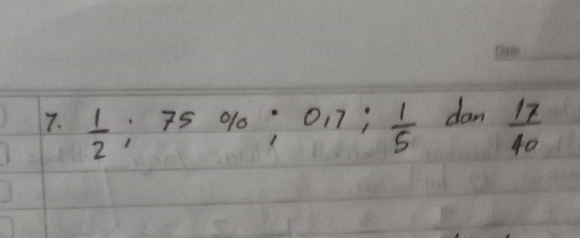 Date
7. 1/2 ; 75 % ; 0,7 ; 1/5 dan 17/40